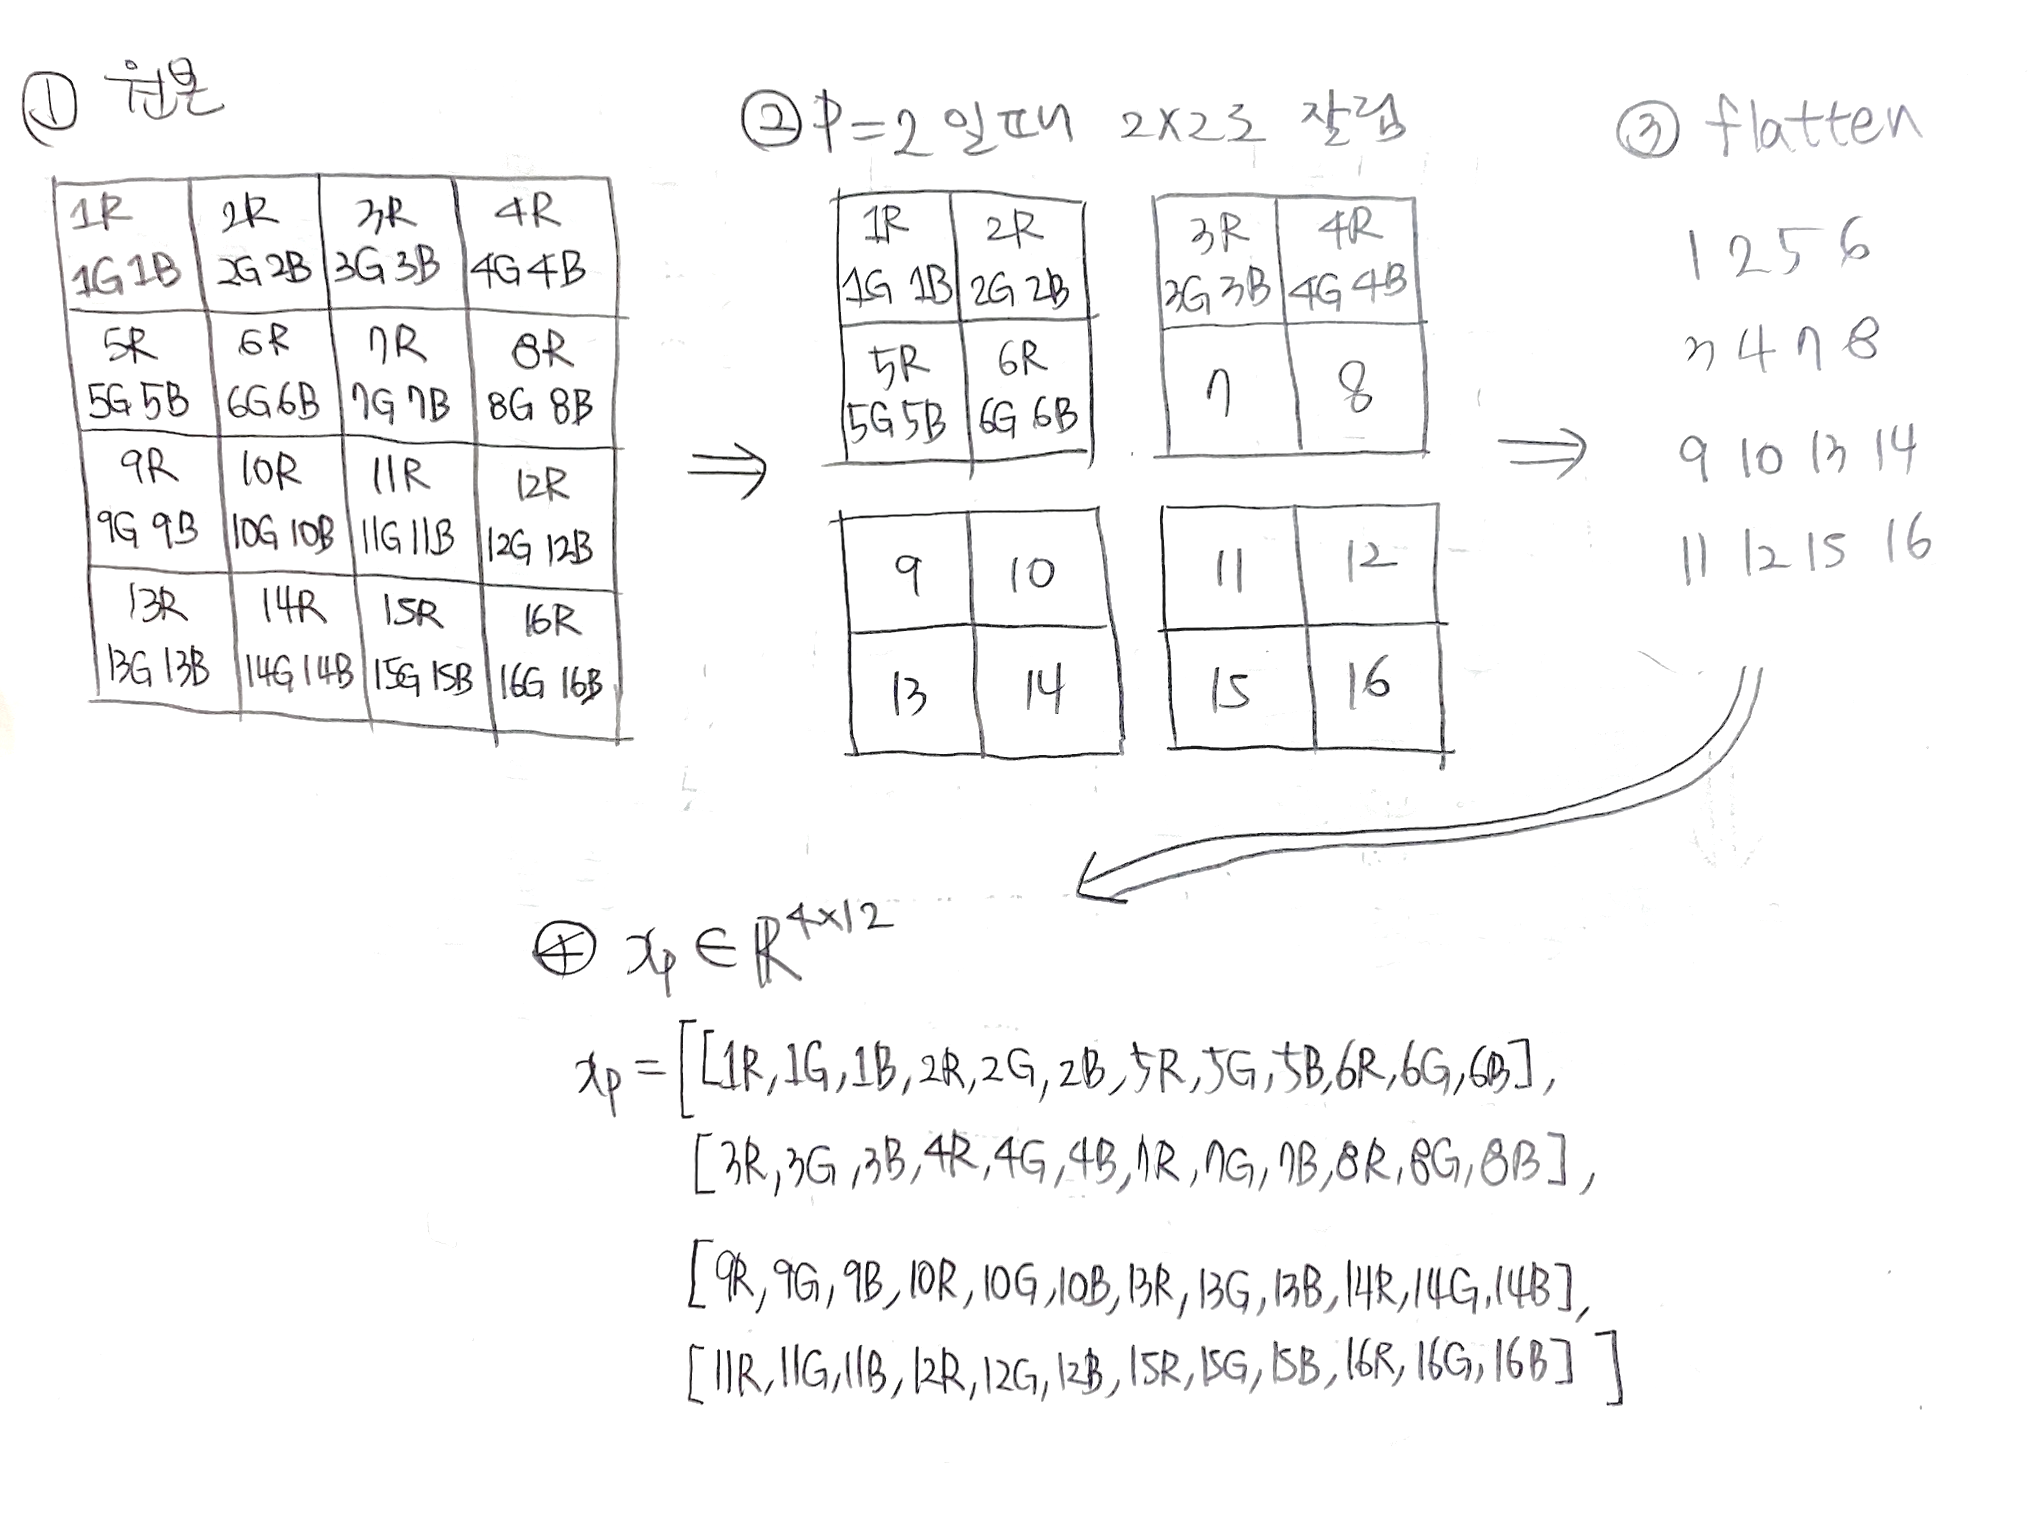 ① 원본
1R 2R 3R 4R
1G 1B 2G 2B 3G 3B 4G 4B
5R 6R 7R 8R
5G 5B 6G 6B 7G 7B 8G 8B
9R 10R 11R 12R
9G 9B 10G 10B 11G 11B 12G 12B
13R 14R 15R 16R
13G 13B 14G 14B 15G 15B 16G 16B
② P=2 일때 2×2로 잘림
1R 2R
1G 1B 2G 2B
5R 6R
5G 5B 6G 6B
3R 4R
3G 3B 4G 4B
7 8
9 10
13 14
11 12
15 16
③ flatten
1 2 5 6
3 4 7 8
9 10 13 14
11 12 15 16
④ xp ∈ ℝ^4×12
xp = [[1R, 1G, 1B, 2R, 2G, 2B, 5R, 5G, 5B, 6R, 6G, 6B],
[3R, 3G, 3B, 4R, 4G, 4B, 7R, 7G, 7B, 8R, 8G, 8B],
[9R, 9G, 9B, 10R, 10G, 10B, 13R, 13G, 13B, 14R, 14G, 14B],
[11R, 11G, 11B, 12R, 12G, 12B, 15R, 15G, 15B, 16R, 16G, 16B]]